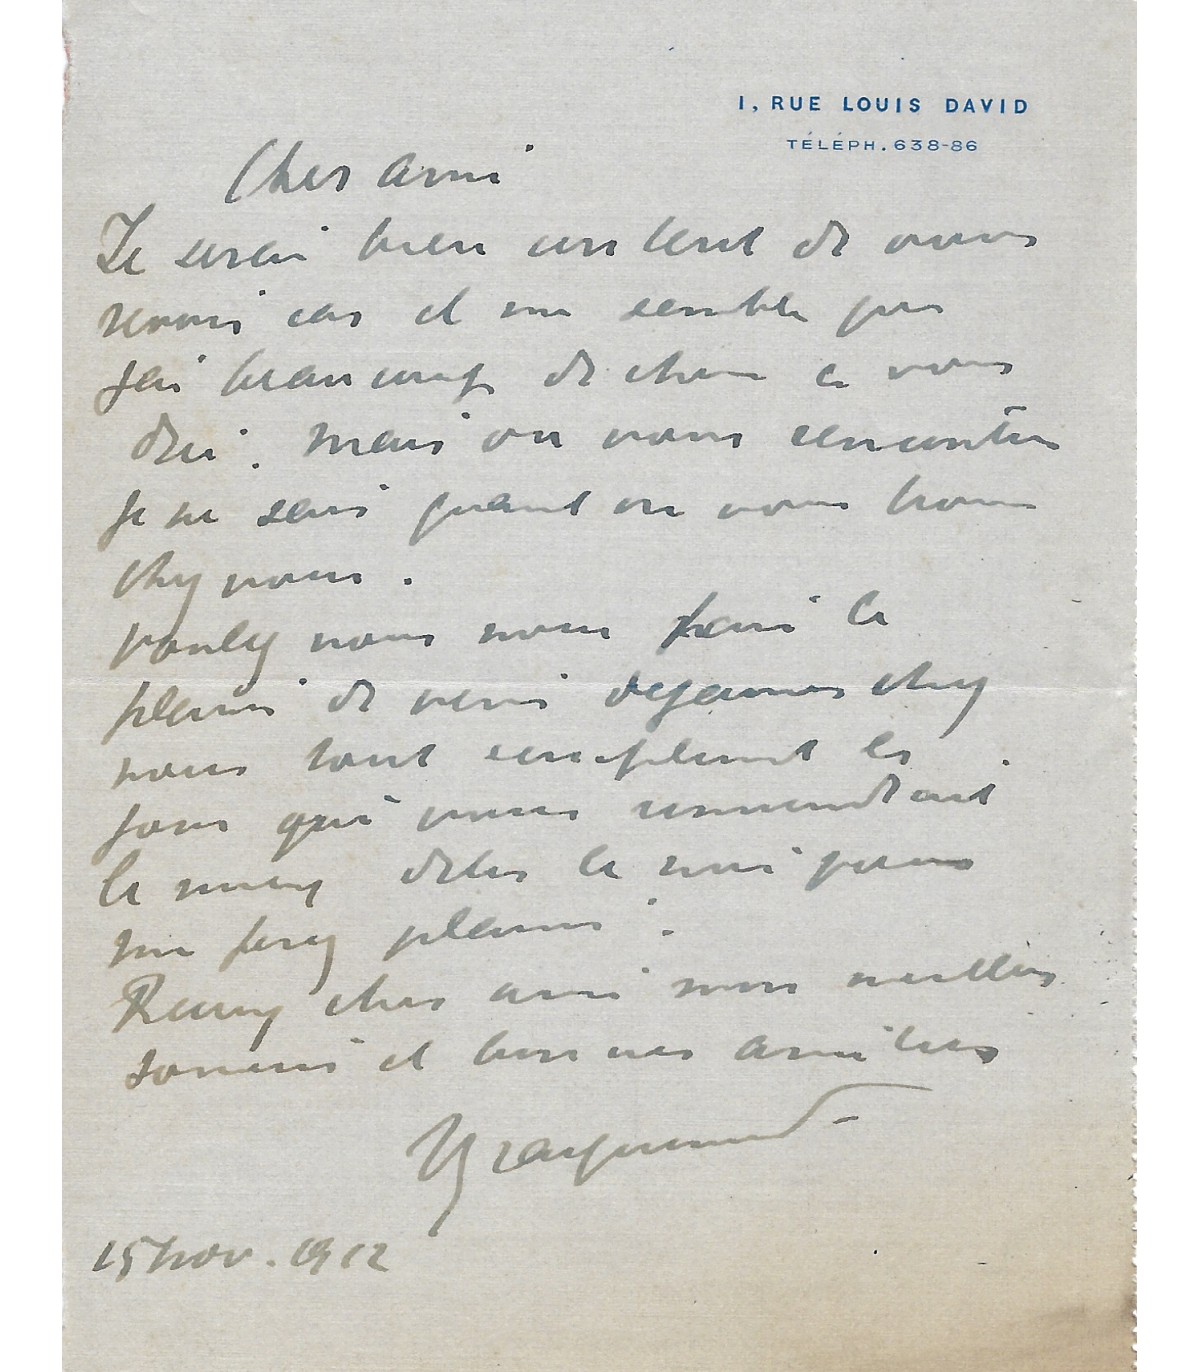 1, RUE LOUIS DAVID
TÉLÉPH. 638-86
Cher ami
Je serai bien content de vous
revoir car il me semble que
j'ai beaucoup de chose a vous
dire. Mais ou vous rencontrer
je ne sais quand on vous trouve
chez vous.
voulez vous nous faire le
plaisir de venir dejeuner chez
nous tout simplement le
jour qui vous conviendrait
le mieux dites le moi vous
me ferez plaisir.
Recevez cher ami mon meilleur
souvenir et bonnes amitiés
15 nov. 1912